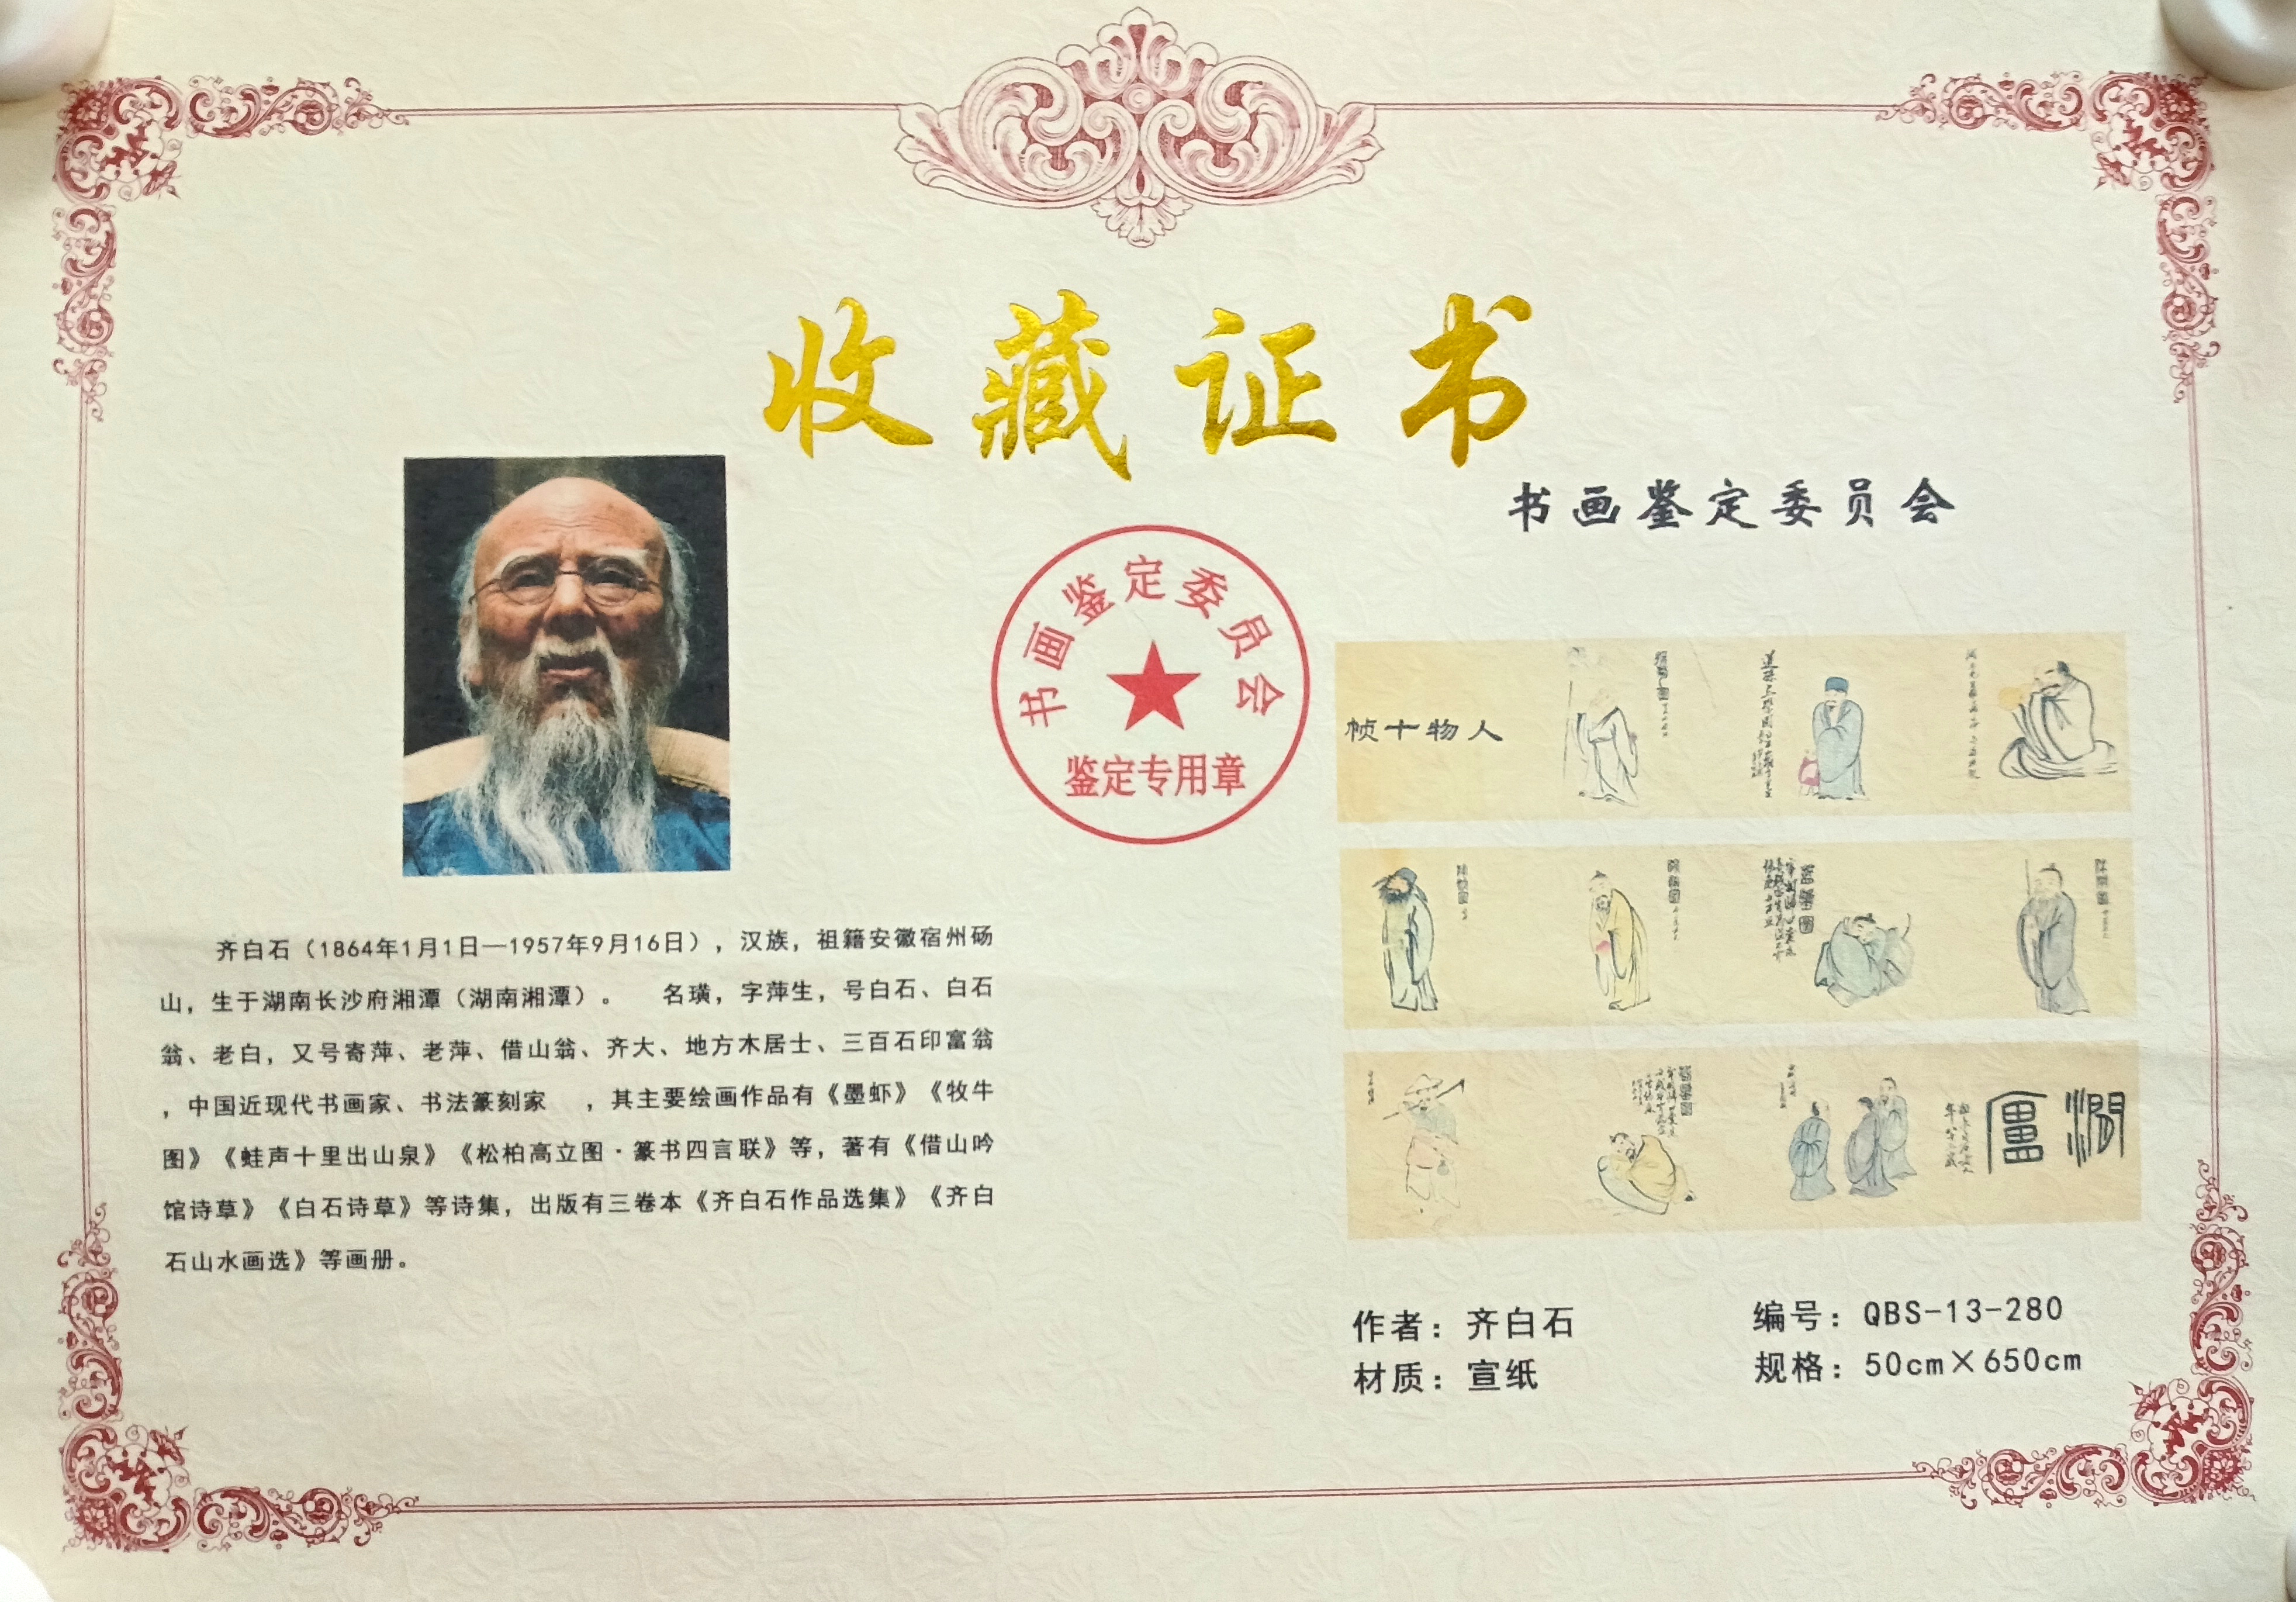 收藏证书
书画鉴定委员会
书画鉴定委员会
鉴定专用章
齐白石（1864年1月1日—1957年9月16日），汉族，祖籍安徽宿州砀
山，生于湖南长沙府湘潭（湖南湘潭）。 名璜，字萍生，号白石、白石
翁、老白，又号寄萍、老萍、借山翁、齐大、地方木居士、三百石印富翁
，中国近现代书画家、书法篆刻家 ，其主要绘画作品有《墨虾》《牧牛
图》《蛙声十里出山泉》《松柏高立图·篆书四言联》等，著有《借山吟
馆诗草》《白石诗草》等诗集，出版有三卷本《齐白石作品选集》《齐白
石山水画选》等画册。
帧十物人
作者：齐白石
编号：QBS-13-280
材质：宣纸
规格：50cm×650cm